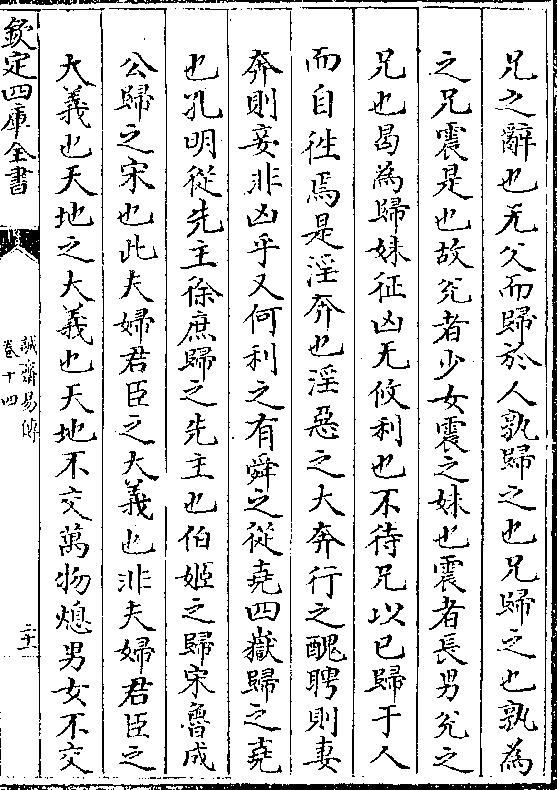 兄之辭也无父而歸於人孰歸之也兄歸之也孰為
之兄震是也故兊者少女震之妹也震者長男兊之
兄也曷為歸妹征凶无攸利也不待兄以已歸于人
而自徃焉是淫奔也淫惡之大奔行之醜聘則妻
奔則妾非凶乎又何利之有舜之從堯四嶽歸之堯
也孔明從先主徐庶歸之先主也伯姬之歸宋魯成
公歸之宋也此夫婦君臣之大義也非夫婦君臣之
大義也天地之大義也天地不交萬物熄男女不交
欽定四庫全書
誠齋易傳
卷十四
二十一